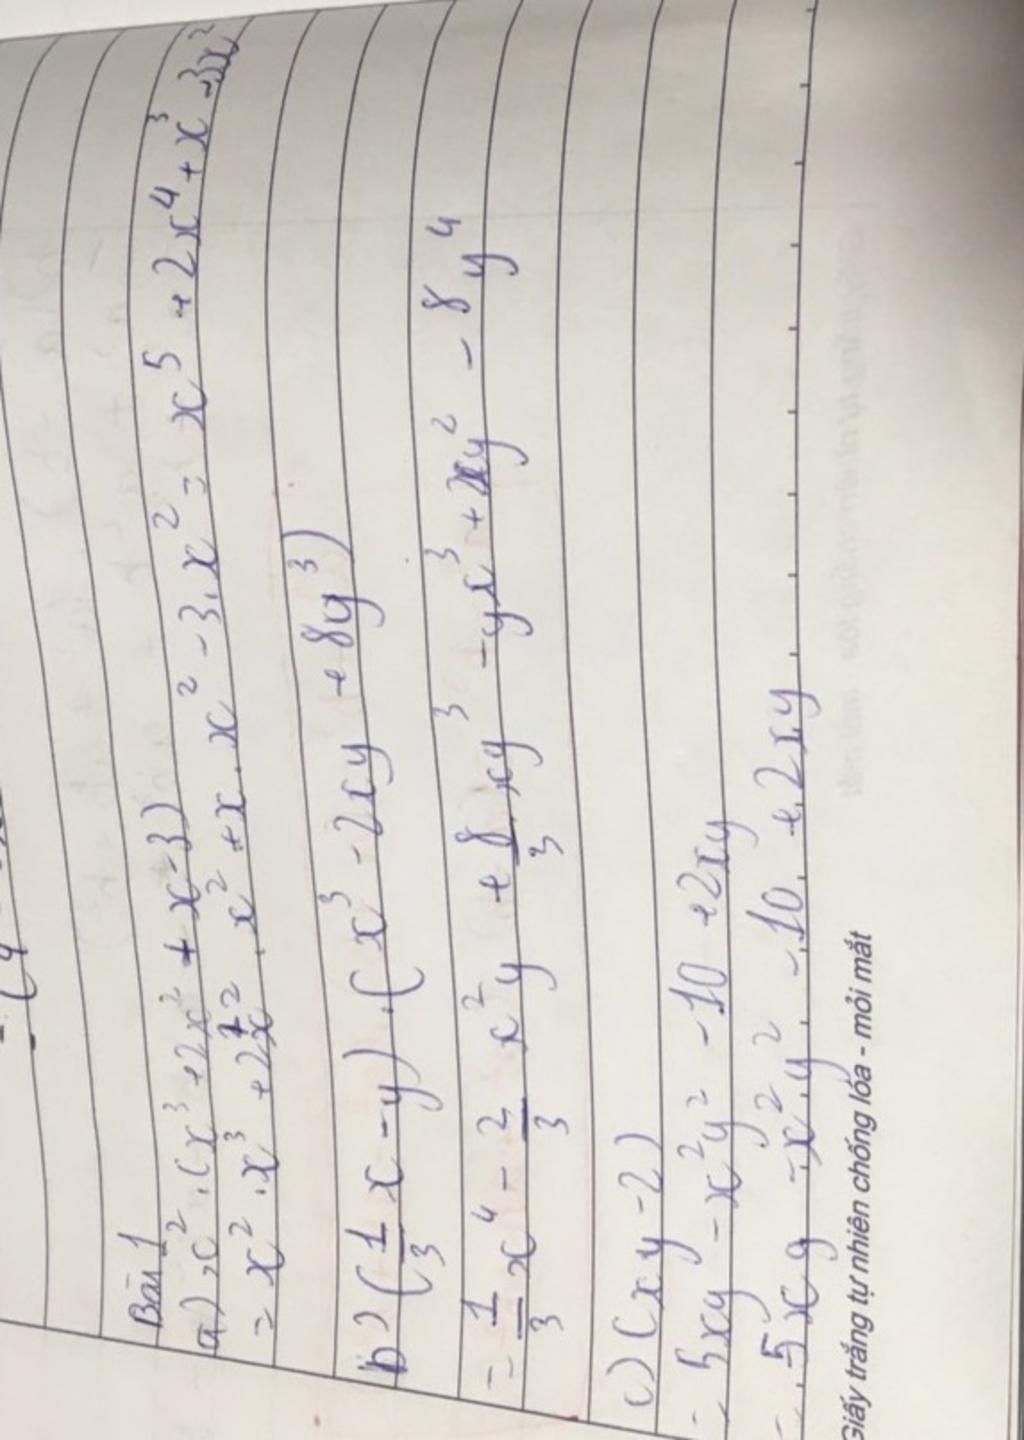 Bài 1
a) x² . (x³ + 2x² + x - 3)
= x² . x³ + 2x² . x² + x . x² - 3 . x² = x⁵ + 2x⁴ + x³ - 3x²
b) (1/3 x - y) . (x³ - 2xy + 8y³)
= 1/3 x⁴ - 2/3 x² y + 8/3 xy³ - yx³ + 2xy² - 8y⁴
c) (xy - 2)
= 5xy - x²y² - 10 + 2xy
= 5xy - x² y² - 10 + 2xy
Giấy trắng tự nhiên chống lóa - mỏi mắt